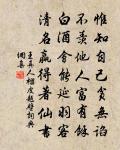 惟知自己貧無諂
不羨他人富有餘
白酒會能延羽客
清名贏得著仙書
王真人摺皮題壁詞典
網集